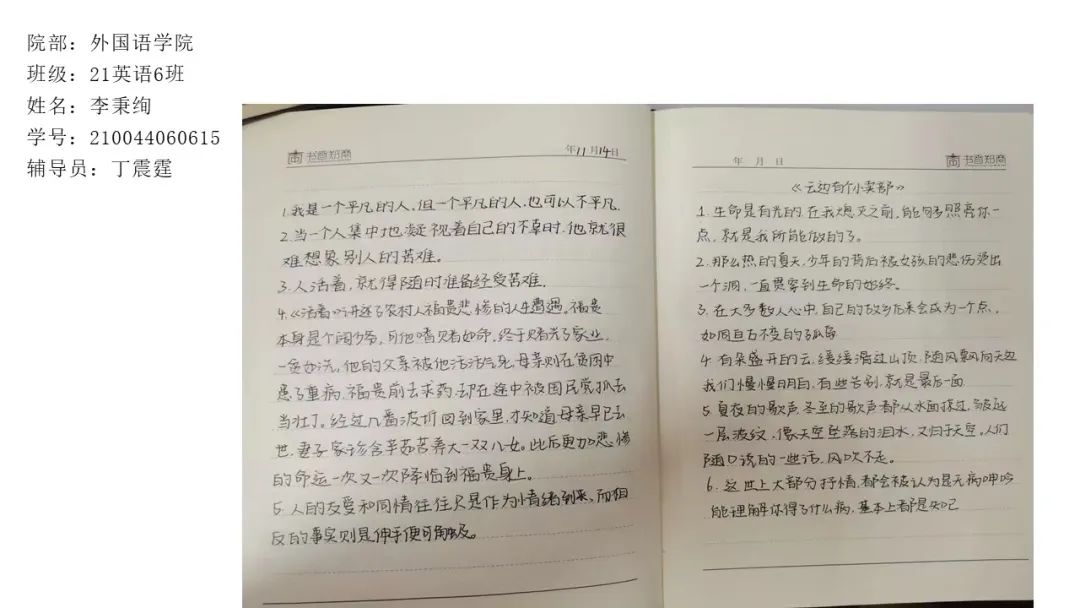 院部：外国语学院
班级：21英语6班
姓名：李秉绚
学号：210044060615
辅导员：丁震霆
书商知商
年11月14日
1.我是一个平凡的人，但一个平凡的人，也可以不平凡.
2.当一个人集中地凝视着自己的不幸时，他就很
难想象别人的苦难。
3.人活着，就得随时准备经受苦难.
4.《活着》讲述了农村人福贵悲惨的人生遭遇。福贵
本身是个阔少爷，可他嗜赌如命，终于赌光了家业，
一贫如洗，他的父亲被他活活气死，母亲则在贫困中
患了重病，福贵前去求药，却在途中被国民党抓去
当壮丁。经过几番波折回到家里，才知道母亲早已去
世，妻子家珍含辛茹苦养大一双儿女。此后更加悲惨
的命运一次又一次降临到福贵身上。
5.人的友爱和同情往往只是作为情绪到来，而相
反的事实则是伸手便可触及。
年 月 日
书商知商
《云边有个小卖部》
1.生命是有光的.在我熄灭之前，能够照亮你一
点，就是我所能做的了。
2.那么热的夏天，少年的背后被女孩的悲伤烫出
一个洞，一直贯穿到生命的始终。
3.在大多数人心中，自己的故乡后来会成为一个点，
如同亘古不变的孤岛
4.有朵盛开的云，缓缓滑过山顶，随风飘向天边
我们慢慢明白，有些告别，就是最后一面
5.夏夜的歌声，冬至的歌声都从水面掠过，皱起
一层波纹，像天空坠落的泪水，又归于天空。人们
随口说的一些话，风吹不走。
6.这世上大部分抒情，都会被认为是无病呻吟
能理解你得了什么病，基本上都是知己